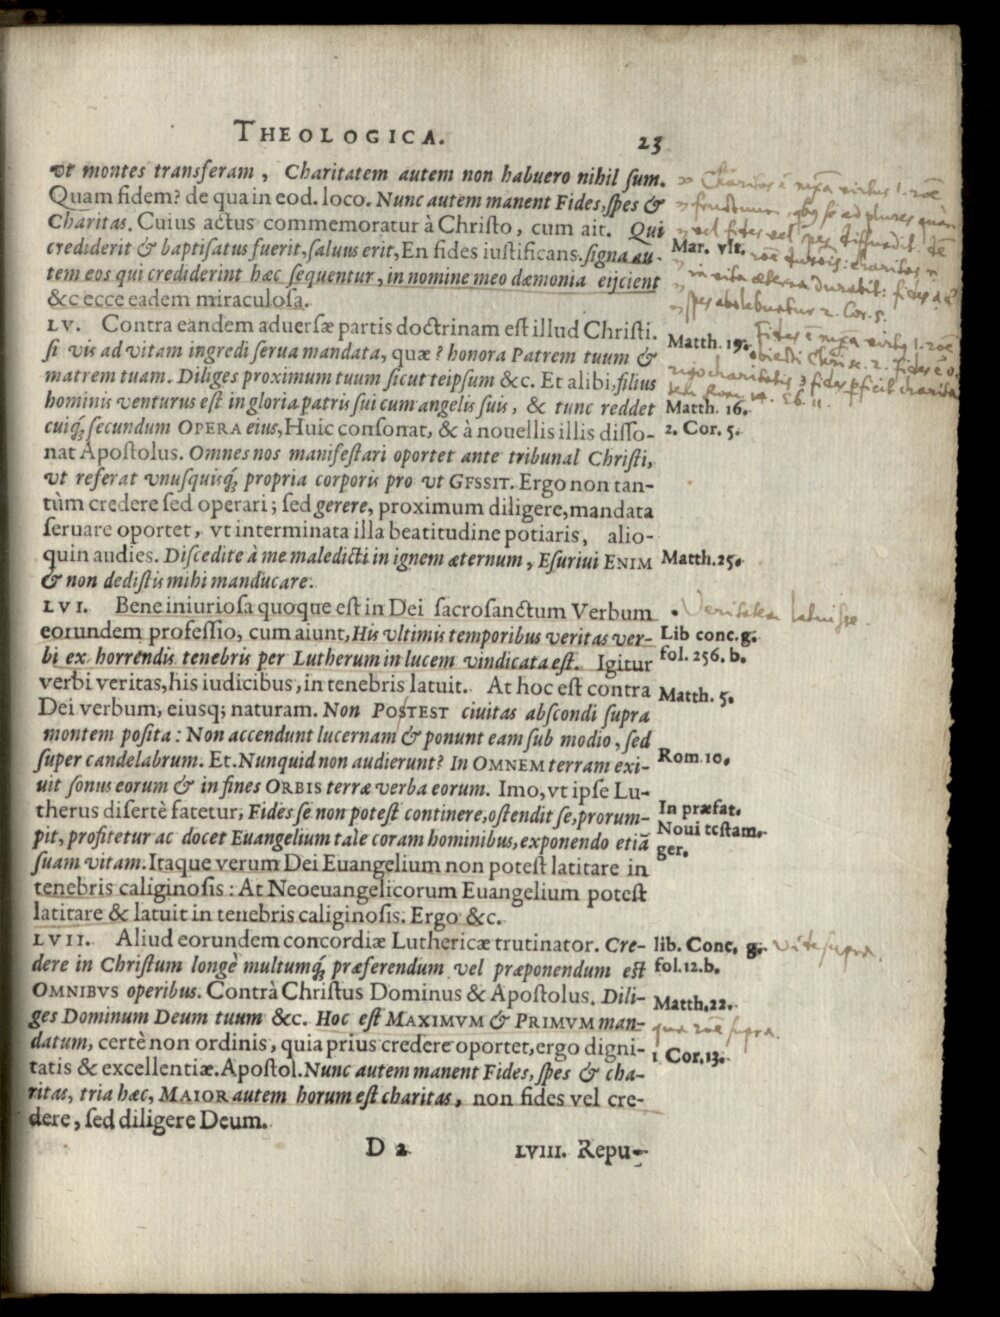 THEOLOGICA. 23
vt montes transferam, Charitatem autem non habuero nihil sum.
Quam fidem? de qua in eod. loco. Nunc autem manent Fides, spes &
Charitas. Cuius actus commemoratur à Christo, cum ait. Qui
crediderit & baptisatus fuerit, saluus erit, En fides iustificans. signa au-
Mar. vlt.
tem eos qui crediderint hæc sequentur, in nomine meo dæmonia eijcient
&c ecce eadem miraculosa.
LV. Contra eandem aduersæ partis doctrinam est illud Christi.
si vis ad vitam ingredi serua mandata, quæ? honora Patrem tuum &
Matth. 19.
matrem tuam. Diliges proximum tuum sicut teipsum &c. Et alibi, filius
hominis venturus est in gloria patris sui cum angelis suis, & tunc reddet
Matth. 16.
cuiq; secundum OPERA eius, Huic consonat, & à nouellis illis disso-
2. Cor. 5.
nat Apostolus. Omnes nos manifestari oportet ante tribunal Christi,
vt referat vnusquisq; propria corporis pro vt GESSIT. Ergo non tan-
tùm credere sed operari; sed gerere, proximum diligere, mandata
seruare oportet, vt interminata illa beatitudine potiaris, alio-
quin audies. Discedite à me maledicti in ignem æternum, Esuriui ENIM
Matth. 25.
& non dedistis mihi manducare.
LVI. Bene iniuriosa quoque est in Dei sacrosanctum Verbum
Veritatem latuisse.
eorundem professio, cum aiunt, His vltimis temporibus veritas ver-
Lib conc. g.
bi ex horrendis tenebris per Lutherum in lucem vindicata est. Igitur
fol. 256. b.
verbi veritas, his iudicibus, in tenebris latuit. At hoc est contra
Matth. 5.
Dei verbum, eiusq; naturam. Non POSTEST ciuitas abscondi supra
montem posita: Non accendunt lucernam & ponunt eam sub modio, sed
super candelabrum. Et. Nunquid non audierunt? In OMNEM terram exi-
Rom. 10.
uit sonus eorum & in fines ORBIS terræ verba eorum. Imo, vt ipse Lu-
therus disertè fatetur, Fides se non potest continere, ostendit se, prorum-
In præfat.
pit, profitetur ac docet Euangelium tale coram hominibus, exponendo etiã
Noui testam.
ger.
suam vitam. Itaque verum Dei Euangelium non potest latitare in
tenebris caliginosis: At Neoeuangelicorum Euangelium potest
latitare & latuit in tenebris caliginosis. Ergo &c.
LVII. Aliud eorundem concordiæ Luthericæ trutinator. Cre-
lib. Conc. g. vite supra.
dere in Christum longè multumq; præferendum vel præponendum est
fol. 12. b.
OMNIBVS operibus. Contrà Christus Dominus & Apostolus. Dili-
Matth. 22.
ges Dominum Deum tuum &c. Hoc est MAXIMVM & PRIMVM man-
supra.
datum, certè non ordinis, quia prius credere oportet, ergo digni-
1 Cor. 13.
tatis & excellentiæ. Apostol. Nunc autem manent Fides, spes & cha-
ritas, tria hæc, MAIOR autem horum est charitas, non fides vel cre-
dere, sed diligere Deum.
D 2 LVIII. Repu-